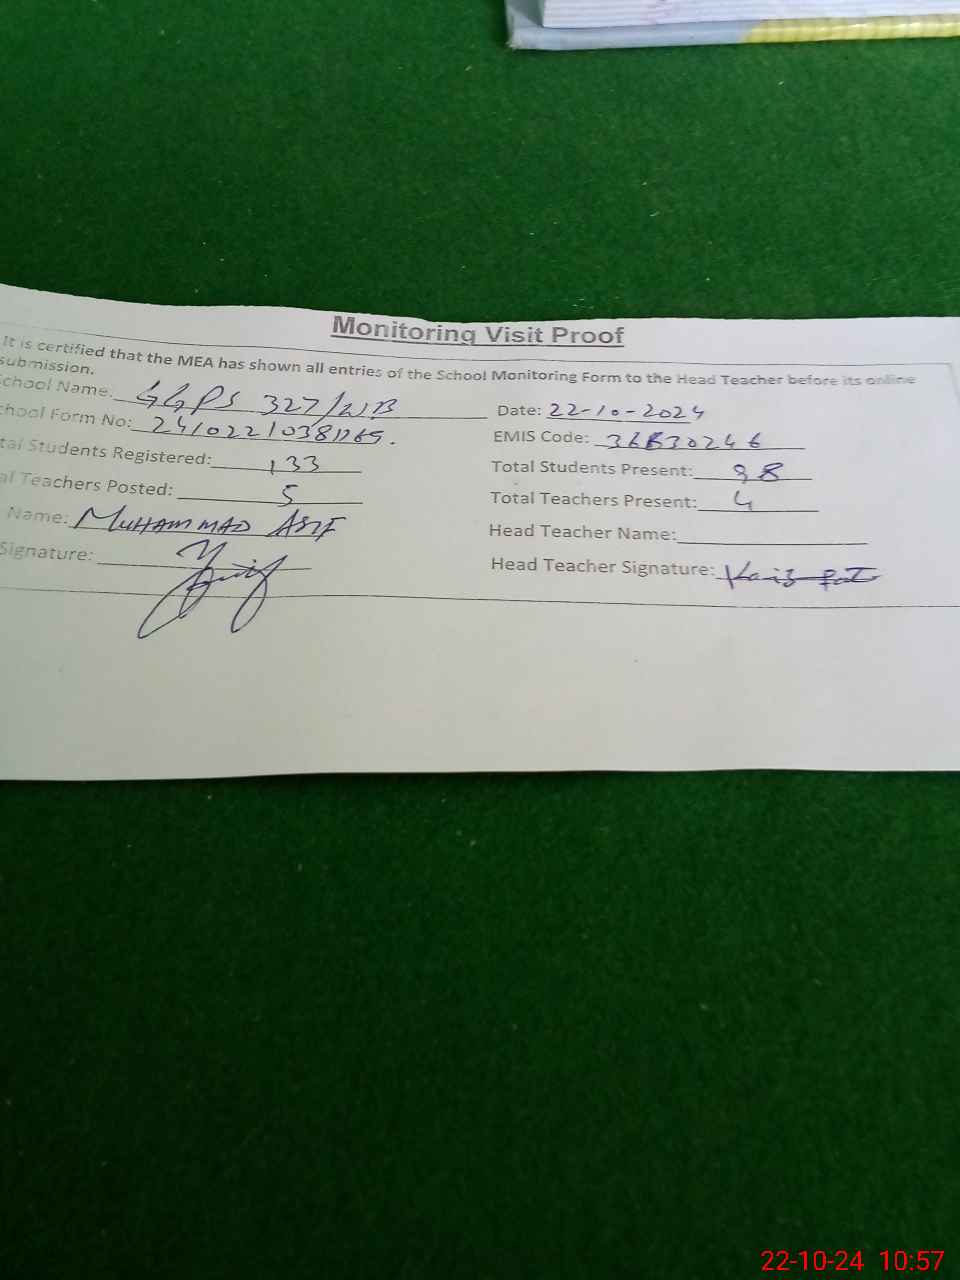 Monitoring Visit Proof
It is certified that the MEA has shown all entries of the School Monitoring Form to the Head Teacher before its online
submission.
chool Name: GGPS 327/WB Date: 22-10-2024
chool Form No: EMIS Code:
tal Students Registered: 133 Total Students Present: 98
al Teachers Posted: 5 Total Teachers Present: 4
Name: MUHAMMAD ASIF Head Teacher Name:
Signature: Head Teacher Signature:
22-10-24 10:57